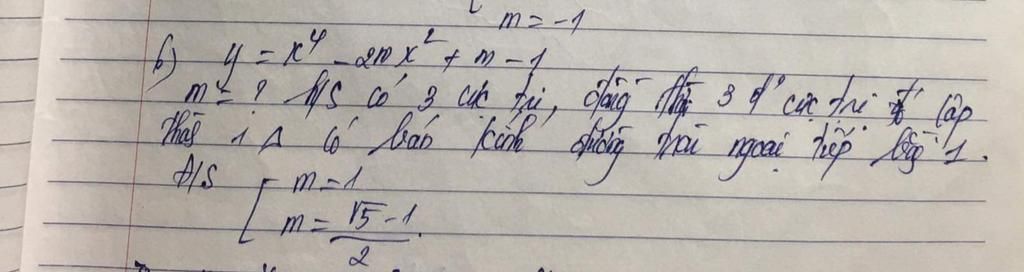 m = -1
b) y = x⁴ - 2mx² + m - 1
m = ? h/s có 3 cực trị, đồng thời 3 đ' cực trị lập
thành 1 Δ có bán kính đường tròn ngoại tiếp bằng 1.
Đ/S [ m = 1
m = (√5 - 1)/2.